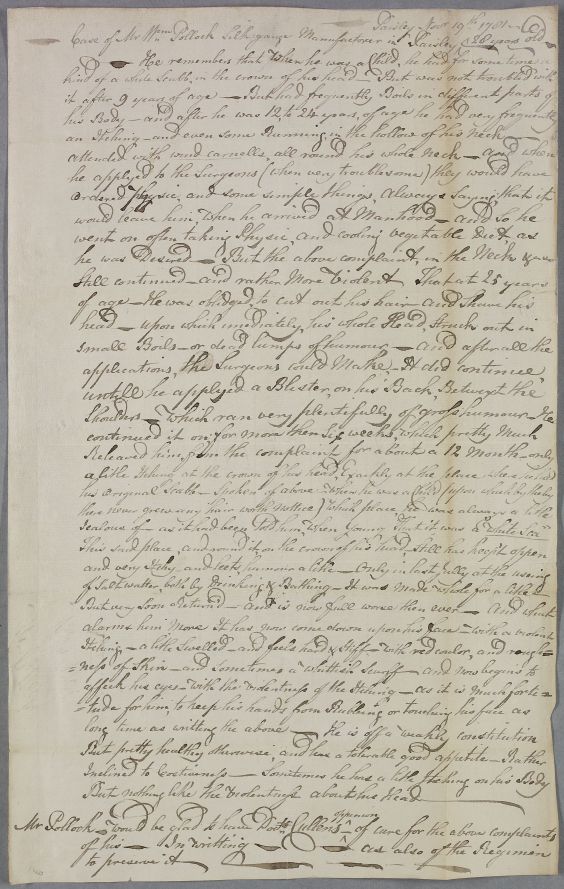 Paisley Novr 19th 1781
Case of Mr Wm Pollock Silk gauze Manufacturer in Paisley 28 years old
He remembers that when he was a Child, he had for some time a
kind of a white Scabb, in the crown of his head - But was not troubled with
it after 9 years of age - But had frequently Boils in different parts of
his Body - and after he was 12 to 24 years, of age he had very frequently
an Itching - and even some Running in the hollow of his Neck
attended with wind carnells, all round his whole Neck - and when
he applyed to the Surgeons (when very troublesome) they would have
ordered Physic, and some simple things, always saying that it
would leave him, when he arrived at Manhood - and so he
went on often taking Physic and cooling vegetable Diet as
he was Desired - But the above complaint, in the Neck
still continued - and rather More Violent That at 25 years
of age - He was obidged to cut out his hair - and Shave his
head - upon which imediately his whole Head Struck out in
small Boils - or dead lumps of humour - and after all the
applications, the Surgeons could Make - It did continue
untill he applyed a Blister, on his Back, Betwixt the
Shoulders - which ran very plentifully of gross humour - He
continued it on, for more then Six weeks, which pretty Much
Releaved him, from the complaint for about a 12 Month - only
a little Itching at the crown of his head, Exactly at the place where he had
his original Scabb - Spoken of above - when he was a Child (upon which
there never grew any hair worth Notice) which place, he was always a little
Jealous of - as it had been told him, when Young, That it was a White Sca
This said place, and round it on the crown of his head - still has keept open
and very Itchy - and leets humour a little - Only in last July at the useing
of Salt water, both by Drinking & Bathing - It was made whole for a little
But very soon Return'd - and is now full worse then ever - And what
alarms him More It has now come down upon his face - with a violent
Itching - a little Swelled - and feels hard & Stiff - with red coulor, and rough=
=ness of Skin - and Sometimes a Whitish Scurff - and now begins to
affect his eyes - with the violentness of the Itching - as it is much forti=
=tude for him, to keep his hands from Rubbing or touching his face as
long time as writting the above - He is off a weakly constitution
But pretty healthy otherwise, and has a tolerable good appetite - Rather
Inclined to Costiveness - Sometimes he has a little Itching on his Body
But nothing like the Violentness about his Head
Mr Pollock - would be glad to have Doctr Cullens Opinion of cure for the above complaints
of his - In writting - as also of the Regimen
to preserve it